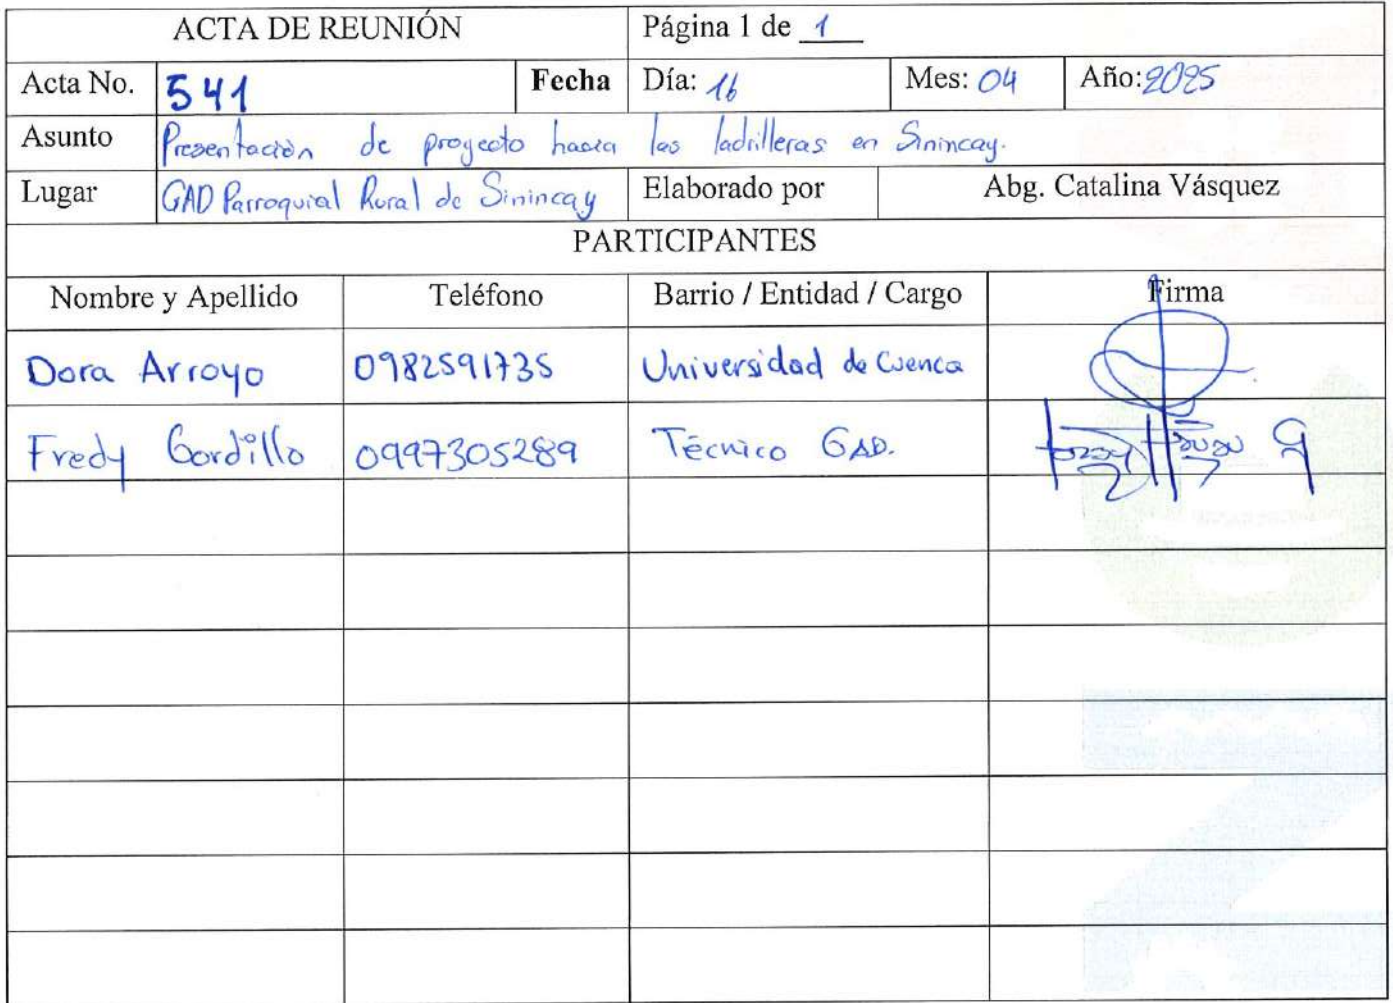 ACTA DE REUNIÓN Página 1 de 1
Acta No. 541 Fecha Día: 16 Mes: 04 Año: 2025
Asunto Presentación de proyecto hacia las ladrilleras en Sinincay.
Lugar GAD Parroquial Rural de Sinincay Elaborado por Abg. Catalina Vásquez
PARTICIPANTES
Nombre y Apellido Teléfono Barrio / Entidad / Cargo Firma
Dora Arroyo 0982591735 Universidad de Cuenca
Fredy Gordillo 0997305289 Técnico GAD.